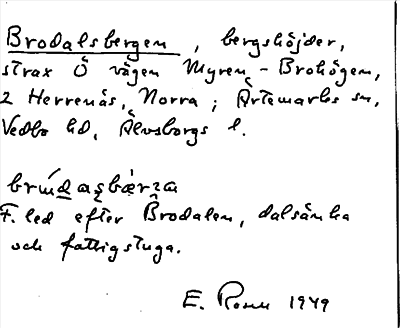 Brodalsbergen, bergshöjder,
strax Ö vägen Myren - Brohögen,
2 Herrenäs, Norra; Ärtemarks sn,
Vedbo hd, Älvsborgs l.
F. led efter Brodalen, dalsänka
och fattigstuga.
E. 1949